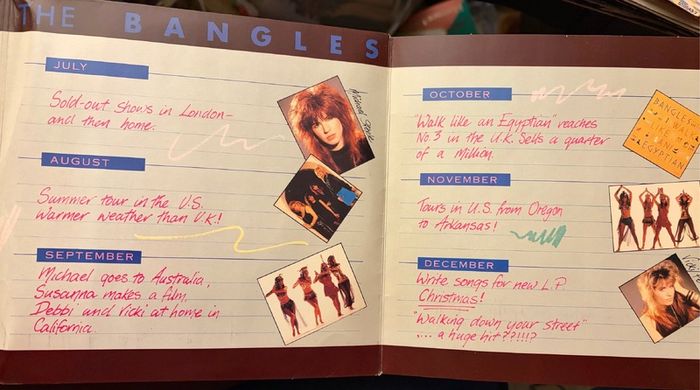 THE BANGLES
JULY
Sold-out shows in London-
and then home.
Michael Steele
AUGUST
Summer tour in the U.S.
Warmer weather than U.K!
SEPTEMBER
Michael goes to Australia,
Susanna makes a film,
Debbi and Vicki at home in
California.
OCTOBER
"Walk like an Egyptian" reaches
No. 3 in the U.K. Sells a quarter
of a million.
BANGLES
WALK
LIKE
AN
EGYPTIAN
NOVEMBER
Tours in U.S. from Oregon
to Arkansas!
DECEMBER
Write songs for new L.P.
Christmas!
"Walking down your street"
.... a huge hit??!!!?